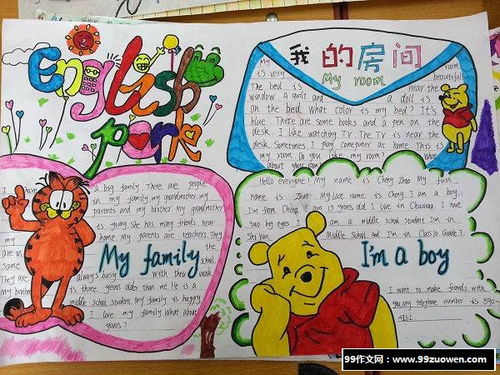 English
park
我的房间
My room
My room
is very beautiful
The bed is near the
window. A quilt and a doll is
on the bed. what color is my bed? It's
blue. There are some books and a pen on the
desk. I like watching TV. The TV is near the
desk. Sometimes I play computer at home. This is
my room. Do you like my room? What
about
a big family. There are people
in my family. my grandmother, my
parents and my brother. My grandmother
is young. She has many friends near
home. My parents are teachers. They
are in
same
school
They are always busy with their work
is three years older than me. He is a
middle school student. My family is happy.
I love my family. What about
yours?
My family
Hello everyone! My name is Cheng Zhao. My first
name is Zhao. My last name is Cheng. I am a boy.
two big eyes. I am a middle school student. I'm in
Middle School and I'm in Class 10 Grade 7.
I'm a boy
I want to make friends with
you. My telephone number is 590-
4262
99作文网:www.99zuowen.com